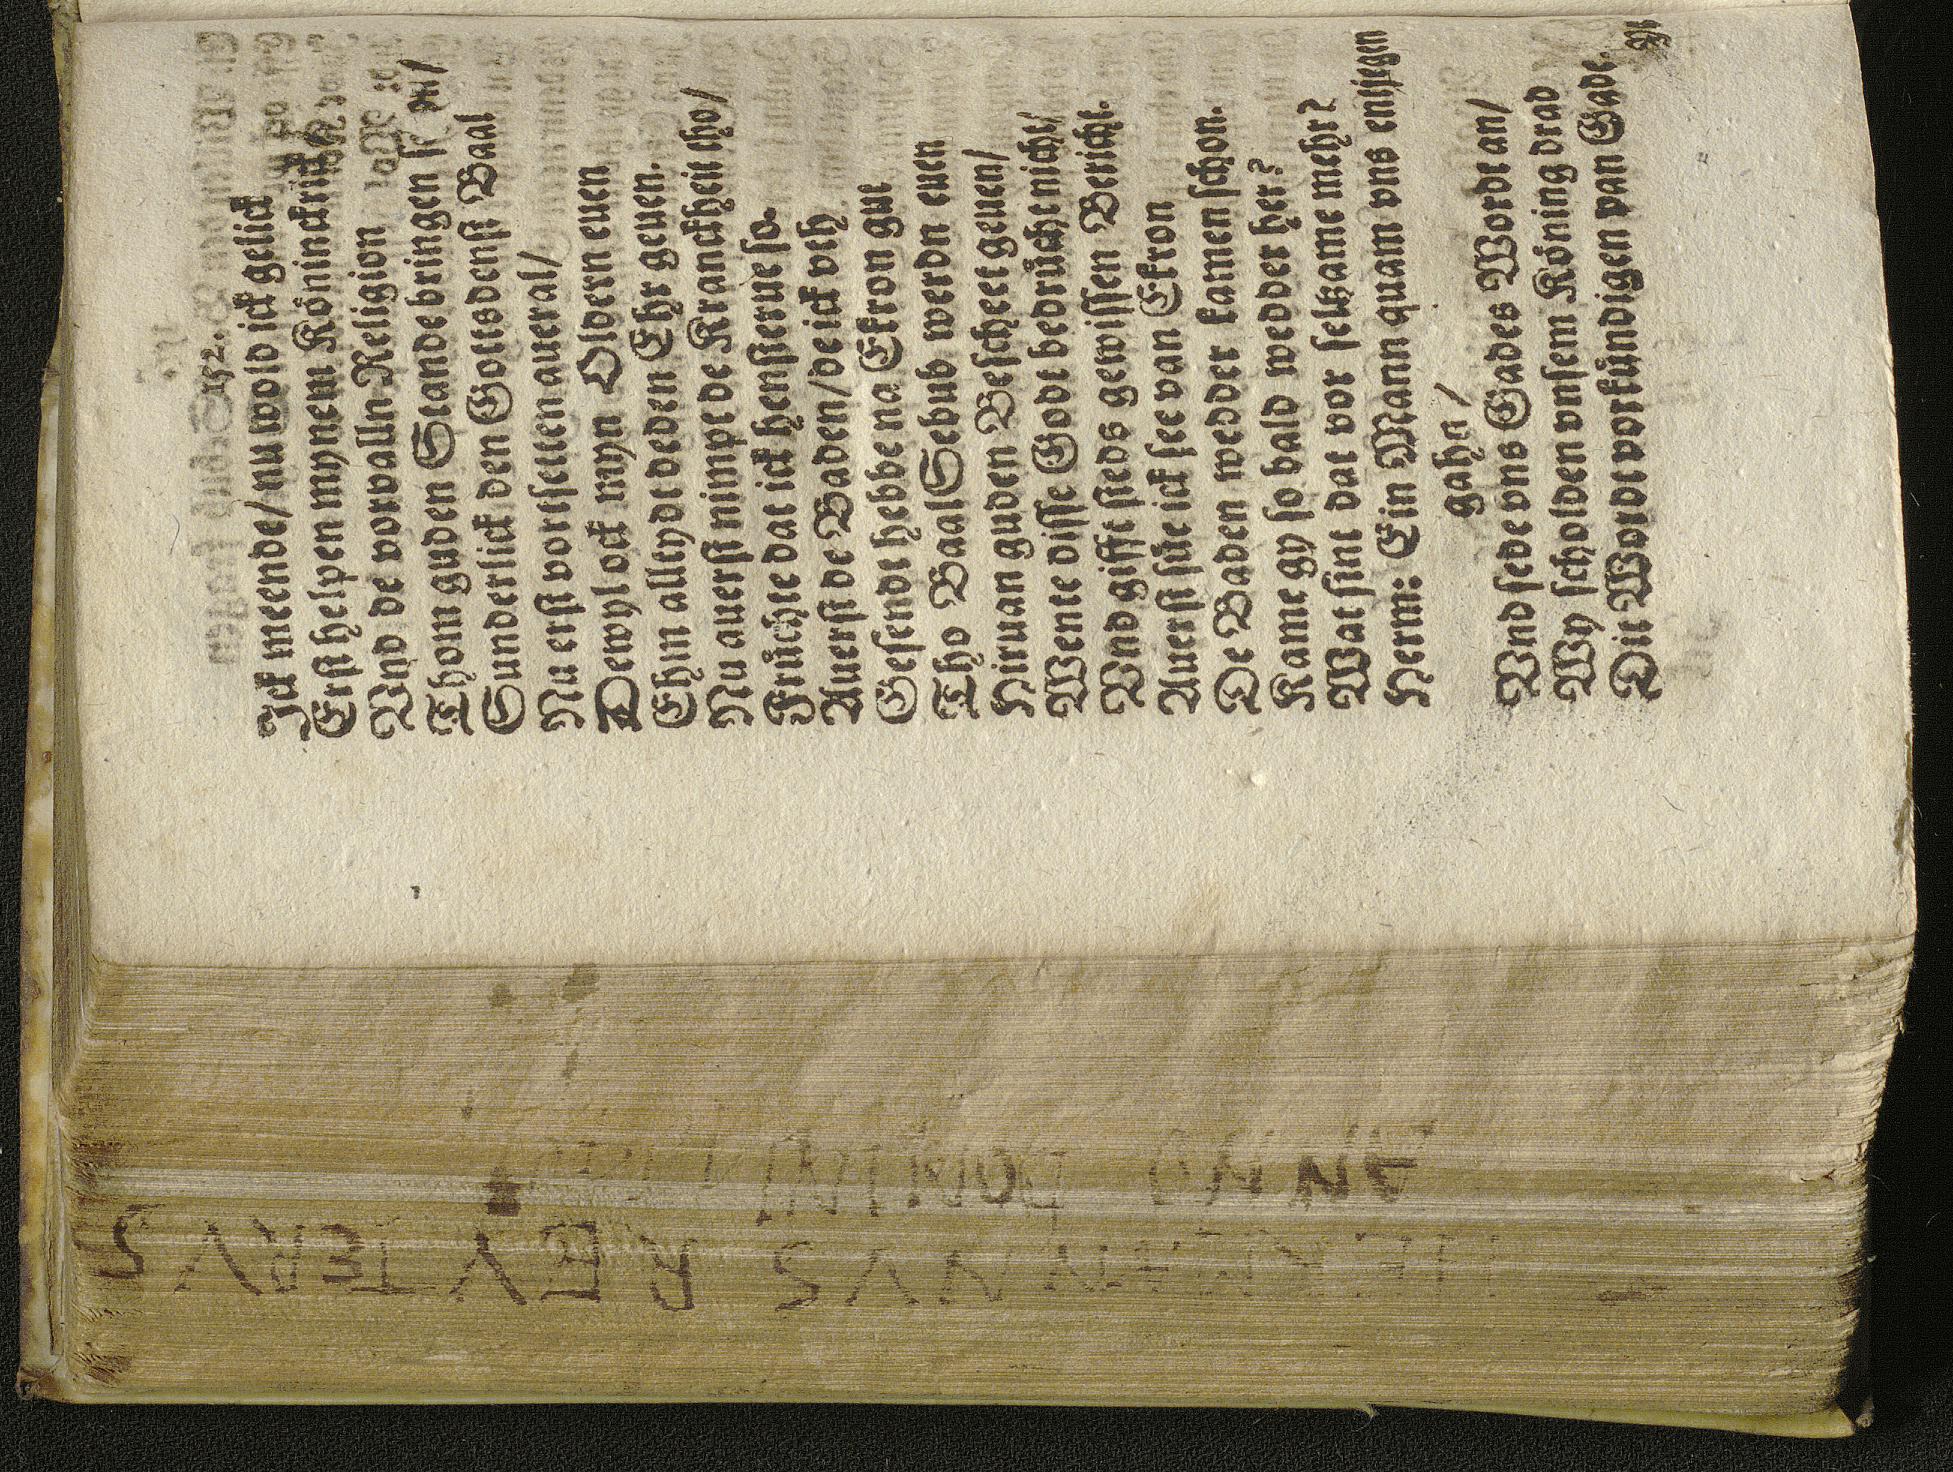 152.
Ick meende/ nu wold ick gelick
Erst helpen mynem Köninckrick/
Vnd de vorvalln Religion
Thom guden Stande bringen
Sunderlick den Gottsdenst Baal
Nu erst vorsetten aueral/
Dewyl ock myn Oldern euen
Ehm alltydt deden Ehr geuen.
Nu auerst nimpt de Kranckheit tho/
Früchte dat ick hensterue so.
Auerst de Baden/ de ick vth
Gesendt hebbe na Ekron gut
Tho Baal Sebub werdn euen
Hiruan guden Bescheet geuen/
Wente disse Godt bedrücht nicht/
Vnd gifft steds gewissen Bericht.
Auerst süte ick see van Ekron
De Baden wedder kamen schon.
Kame gy so bald wedder her?
Wat sint dat vor seltzame mehr?
Herm: Ein Mann quam vns entjegen
gahn/
Vnd sede vns Gades Wordt an/
Wy scholden vnsem Köning drad
Dit Wordt vorkündigen van Gade.
ANNO DOMINI
HERMANNVS REVTERVS